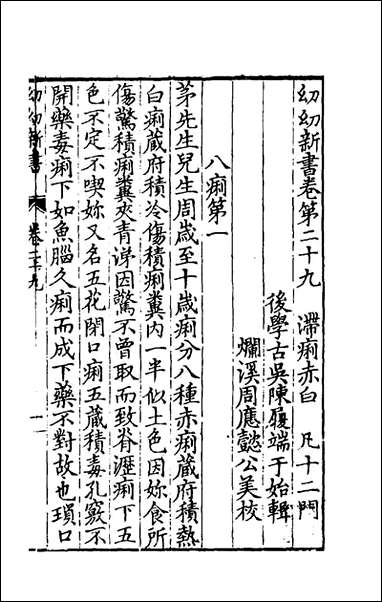 幼幼新書卷第二十九　滯痢赤白　凡十二門
後學古吳陳履端于始輯
爛溪周應懿公美校
八痢第一
茅先生兒生周歲至十歲痢分八種赤痢藏府積熱
白痢藏府積冷傷積痢糞內一半似土色因妳食所
傷驚積痢糞夾青涕因驚不曾取而致脊瀝痢下五
色不定不喫妳又名五花閉口痢五藏積毒孔竅不
開藥毒痢下如魚腦久痢而成下藥不對故也瑣口
幼幼新書　卷二十九　一